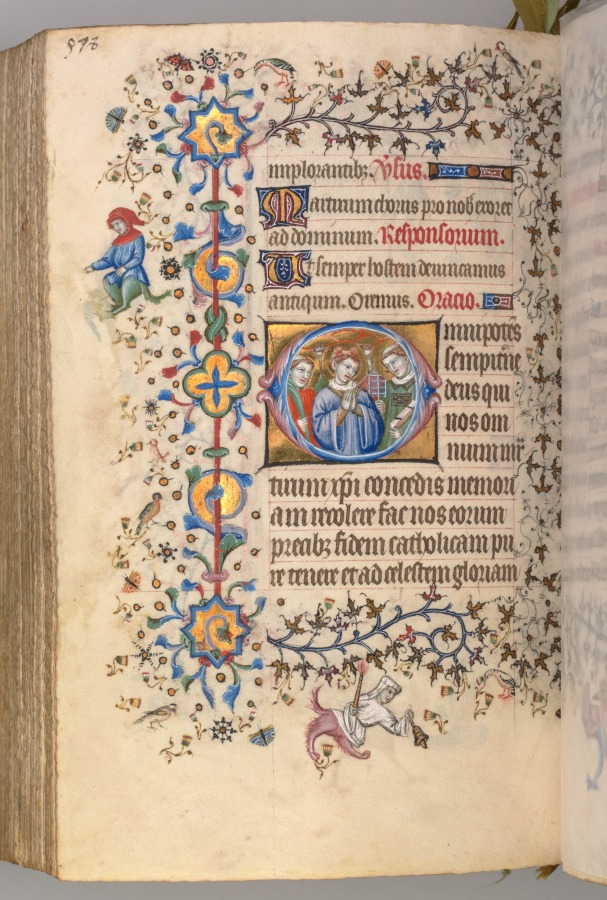 implorantibz. Vſus.
Martirum chorus pro nob exoret
ad dominum. Reſponſorium.
Ut ſemper hoſtem deuincamus
antiqum. Oremus. Oracio.
Omnipotēs
ſempitne
deus qui
nos om
nium mr̄
tirum xp̄i concedis memori
am recolere fac nos eorum
precibz fidem catholicam pu
re tenere et ad celeſtem gloriam